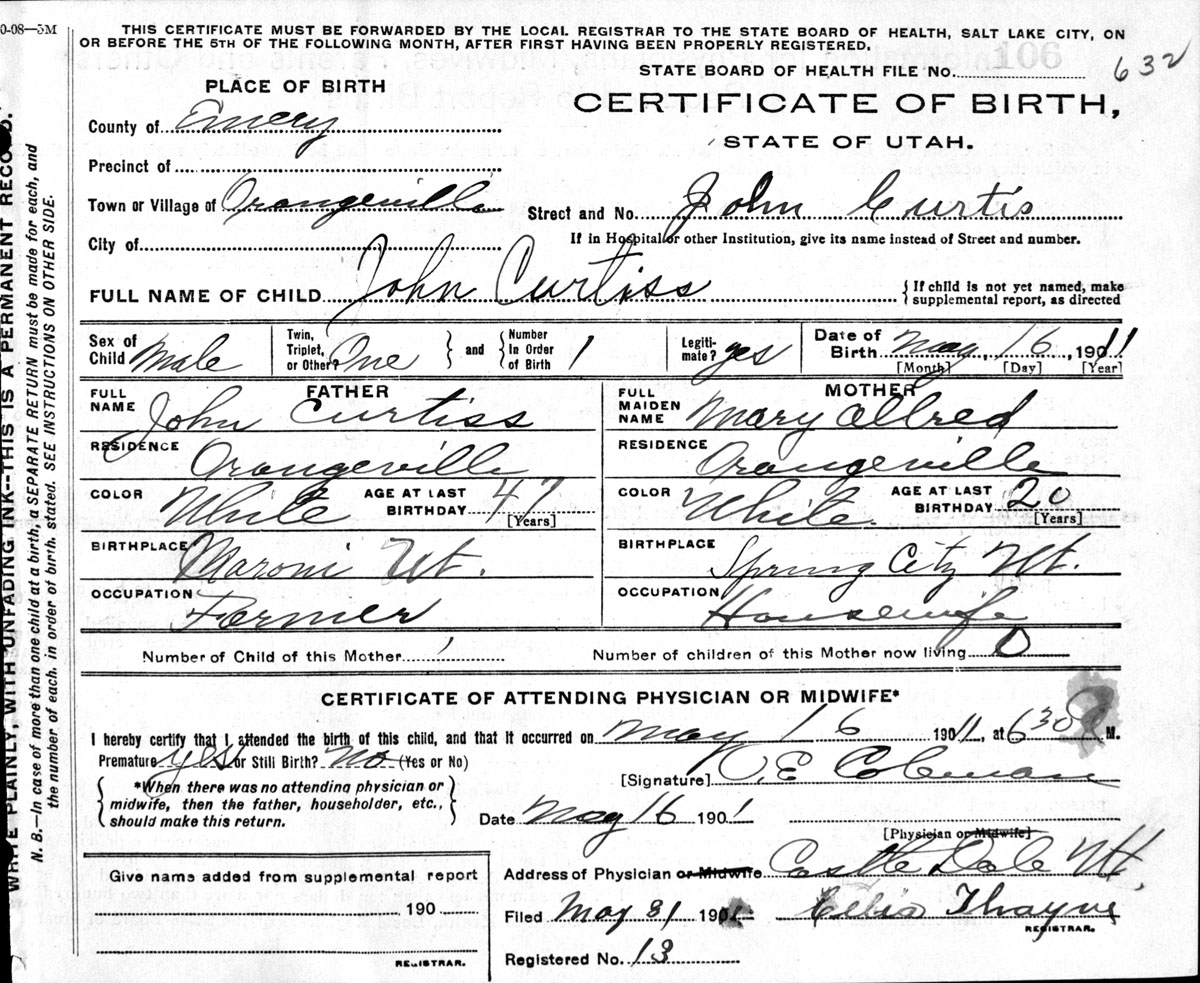 0-08—5M
THIS CERTIFICATE MUST BE FORWARDED BY THE LOCAL REGISTRAR TO THE STATE BOARD OF HEALTH, SALT LAKE CITY, ON
OR BEFORE THE 5TH OF THE FOLLOWING MONTH, AFTER FIRST HAVING BEEN PROPERLY REGISTERED.
STATE BOARD OF HEALTH FILE No. 106 632
PLACE OF BIRTH
CERTIFICATE OF BIRTH,
STATE OF UTAH.
County of Emery
Precinct of
Town or Village of Orangeville
Street and No. John Curtis
City of
If in Hospital or other Institution, give its name instead of Street and number.
FULL NAME OF CHILD John Curtiss
{ If child is not yet named, make
supplemental report, as directed
Sex of Child Male
Twin, Triplet, or Other? One } and { Number In Order of Birth 1
Legiti-mate? yes
Date of Birth May, 16, 1911
[Month] [Day] [Year]
FATHER
FULL NAME John Curtiss
MOTHER
FULL MAIDEN NAME Mary Allred
RESIDENCE Orangeville
RESIDENCE Orangeville
COLOR White AGE AT LAST BIRTHDAY 47 [Years]
COLOR White. AGE AT LAST BIRTHDAY 20 [Years]
BIRTHPLACE Maroni Ut.
BIRTHPLACE Spring City Ut.
OCCUPATION Fermer
OCCUPATION Housewife
Number of Child of this Mother 1
Number of children of this Mother now living 0
CERTIFICATE OF ATTENDING PHYSICIAN OR MIDWIFE*
I hereby certify that I attended the birth of this child, and that it occurred on May 16 1911, at 630 M.
Premature yes or Still Birth? No (Yes or No)
{ *When there was no attending physician or
midwife, then the father, householder, etc.,
should make this return. }
[Signature] O. E. Coleman
Date May 16 1901
[Physician or Midwife]
Give name added from supplemental report
190
REGISTRAR.
Address of Physician or Midwife Castle Dale Ut.
Filed May 31 190 Celia Thayne
REGISTRAR.
Registered No. 13
WRITE PLAINLY, WITH UNFADING INK--THIS IS A PERMANENT RECORD.
N. B.—In case of more than one child at a birth, a SEPARATE RETURN must be made for each, and
the number of each, in order of birth, stated. SEE INSTRUCTIONS ON OTHER SIDE.